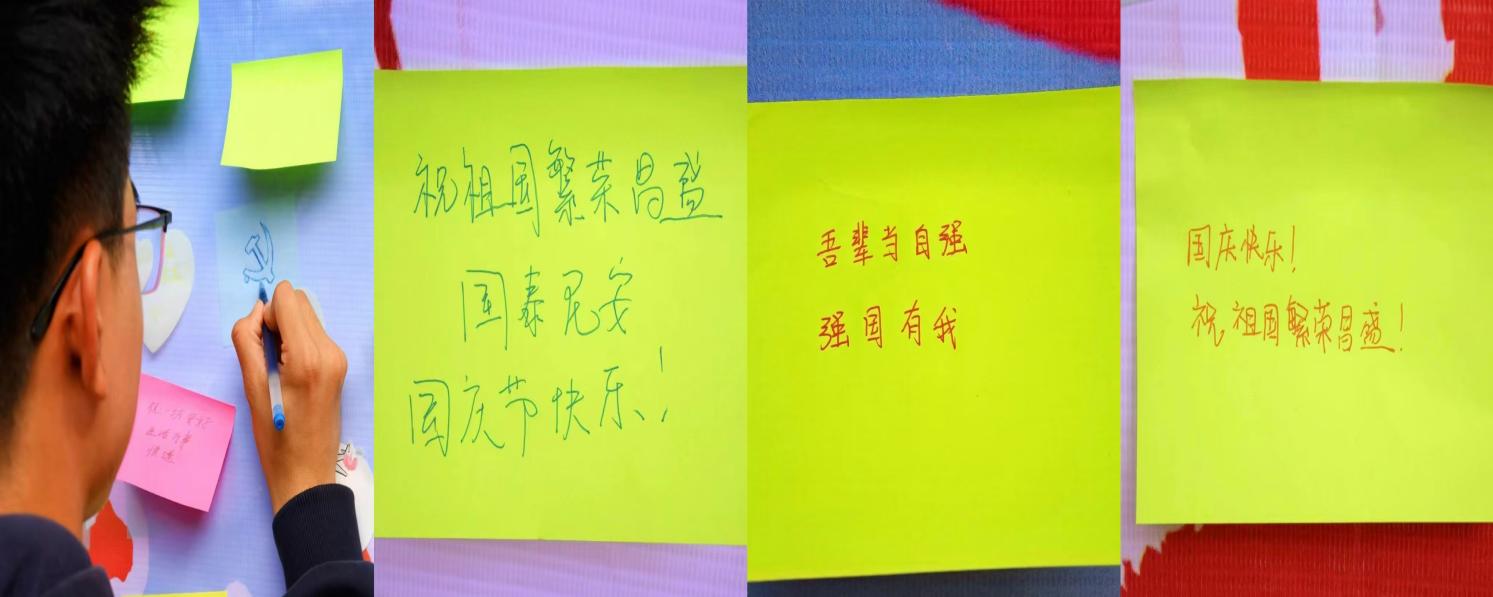 祝祖国繁荣昌盛
国泰民安
国庆节快乐!
吾辈当自强
强国有我
国庆快乐!
祝祖国繁荣昌盛!